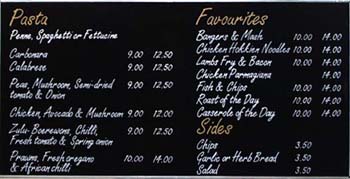 Pasta
Penne, Spaghetti or Fettucine
Carbonara 9.00 12.50
Calabrese 9.00 12.50
Peas, Mushroom, Semi-dried
tomato & Onion 9.00 12.50
Chicken, Avocado & Mushroom 9.00 12.00
Zulu: Boerewors, Chilli,
Fresh tomato & Spring onion 9.00 12.50
Prawns, Fresh oregano
& African chilli 10.00 14.00
Favourites
Bangers & Mash 10.00 14.00
Chicken Hokkin Noodles 10.00 14.00
Lambs Fry & Bacon 10.00 14.00
Chicken Parmagiana 14.00
Fish & Chips 10.00 14.00
Roast of the Day 10.00 14.00
Casserole of the Day 10.00 14.00
Sides
Chips 3.50
Garlic or Herb Bread 3.50
Salad 3.50